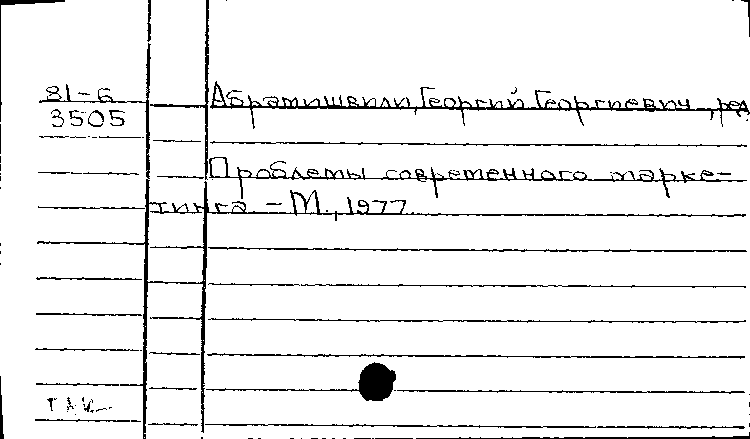 81-6
3505
Абрамишвили, Георгий Георгиевич, ред
Проблемы современного марке-
тинга – М., 1977